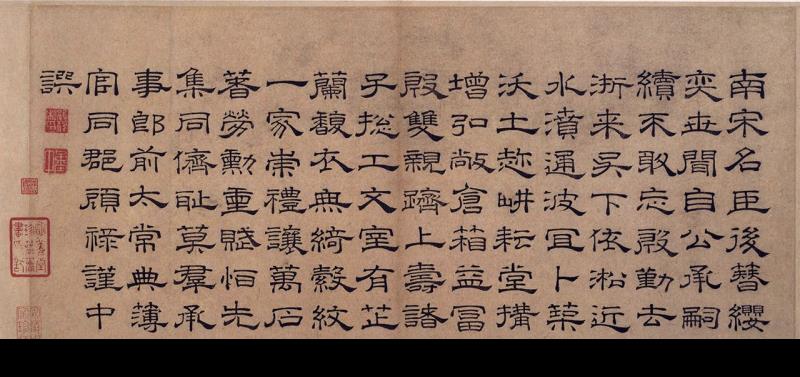 南宋名臣後簪纓
奕世聞自公承嗣
續不敢忘殷勤去
浙来吳下依淞近
水濆通波冝卜築
沃土趂畊耘堂搆
增弘敞倉箱益冨
殷雙親躋上壽諸
子捴工文室有芷
蘭馥衣無綺縠紋
一家崇禮讓萬石
著勞勳重賦恒先
集同儕耻莫羣承
事郎前太常典薄
官同郡顧祿謹中
譔